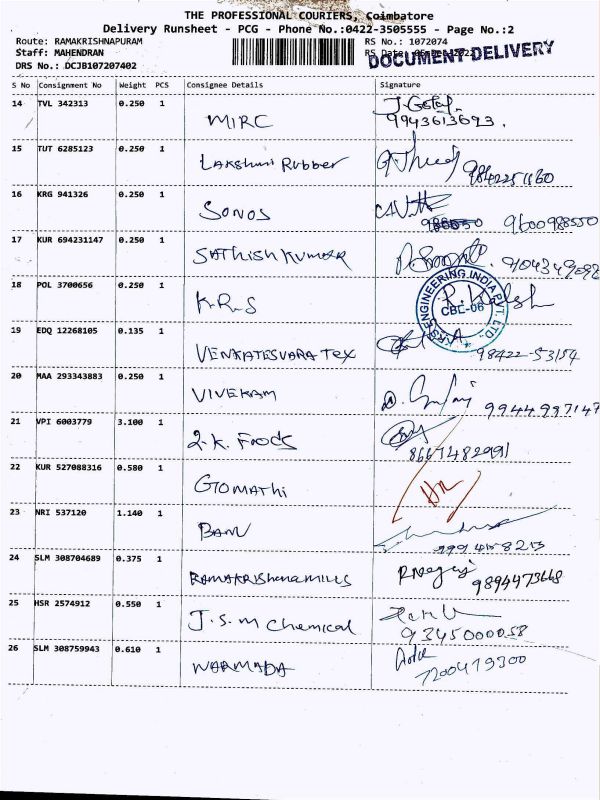 THE PROFESSIONAL COURIERS, Coimbatore
Delivery Runsheet - PCG - Phone No.:0422-3505555 - Page No.:2
Route: RAMAKRISHNAPURAM RS No.: 1072074
Staff: MAHENDRAN RS Date:
DOCUMENT DELIVERY
DRS No.: DCJB107207402
S No Consignment No Weight PCS Consignee Details Signature
14 TVL 342313 0.250 1 MIRC
9943613693.
15 TUT 6285123 0.250 1 Lakshmi Rubber
9842251160
16 KRG 941326 0.250 1 SONOS
9600988550
17 KUR 694231147 0.250 1 SATHISH KUMAR
18 POL 3700656 0.250 1 K.R.S
KRS ENGINEERING INDIA PVT. LTD.
CBE-06
19 EDQ 12268105 0.135 1 VENKATESVARA TEX
98422-53154
20 MAA 293343883 0.250 1 VIVEKAM
9944987147
21 VPI 6003779 3.100 1 2.K. Foods
8667482991
22 KUR 527088316 0.580 1 GOMATHI
23 NRI 537120 1.140 1
24 SLM 308704689 0.375 1 RAMAKRISHNA MILLS
9894473668
25 HSR 2574912 0.550 1 J.S.M Chemical
9345000058
26 SLM 308759943 0.610 1 WARMADA
7200479300